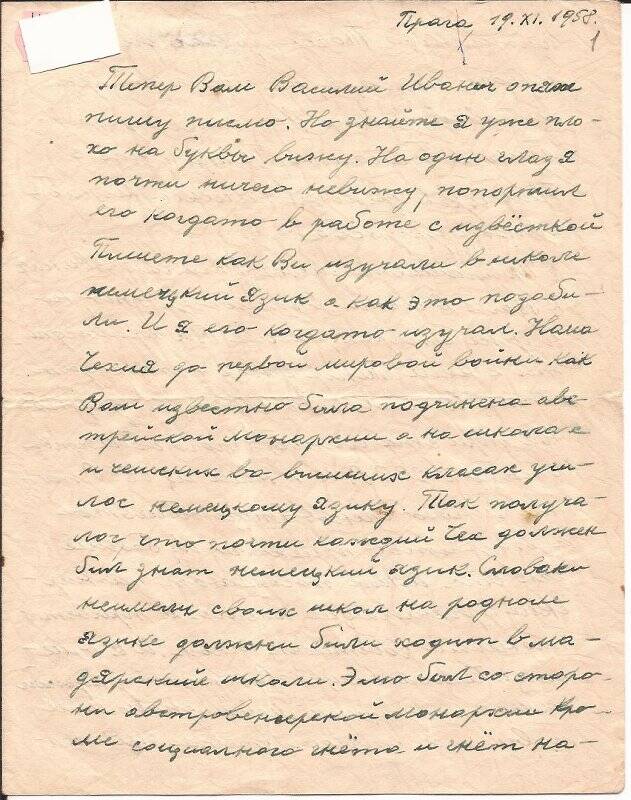 Прага 19. XI. 1958.
1
Тепер Вам Василий Иванич опять
пишу писмо. Но знайте я уже пло-
хо на буквы вижу. На один глаз я
почти ничего невижу, попортил
его когдато в работе с извёсткой
Пишете как Ви изучали в школе
немецкий язик а как это позаби-
ли. И я его когдато изучал. Наша
Чехия до первой мировой войни как
Вам известно била подчинена авс-
трейской монархии а на школах
и чешских во висших класах учи-
лос немецкому язику. Так получа-
лос что почти каждий Чех должен
бил знат немецкий язик. Словаки
неимели своих школ на родном
язике должни били ходит в ма-
дярские школи. Это бил со сторо-
ни австровенгерской монархии кро-
ме социального гнёта и гнёт на-